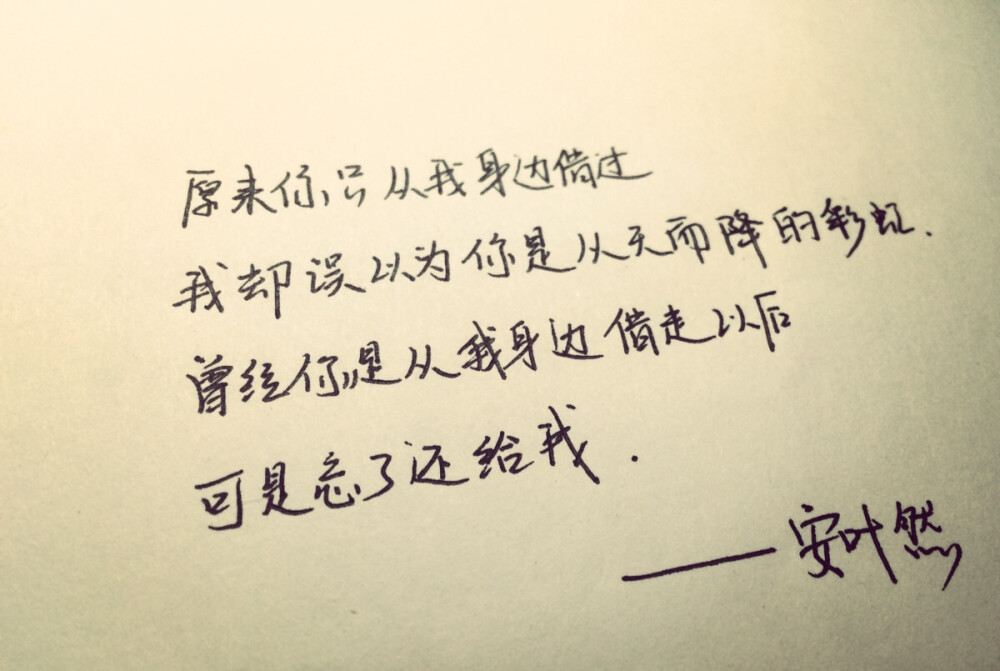 原来你只从我身边借过
我却误以为你是从天而降的彩虹.
曾经你是从我身边借走以后
可是忘了还给我.
——安叶然